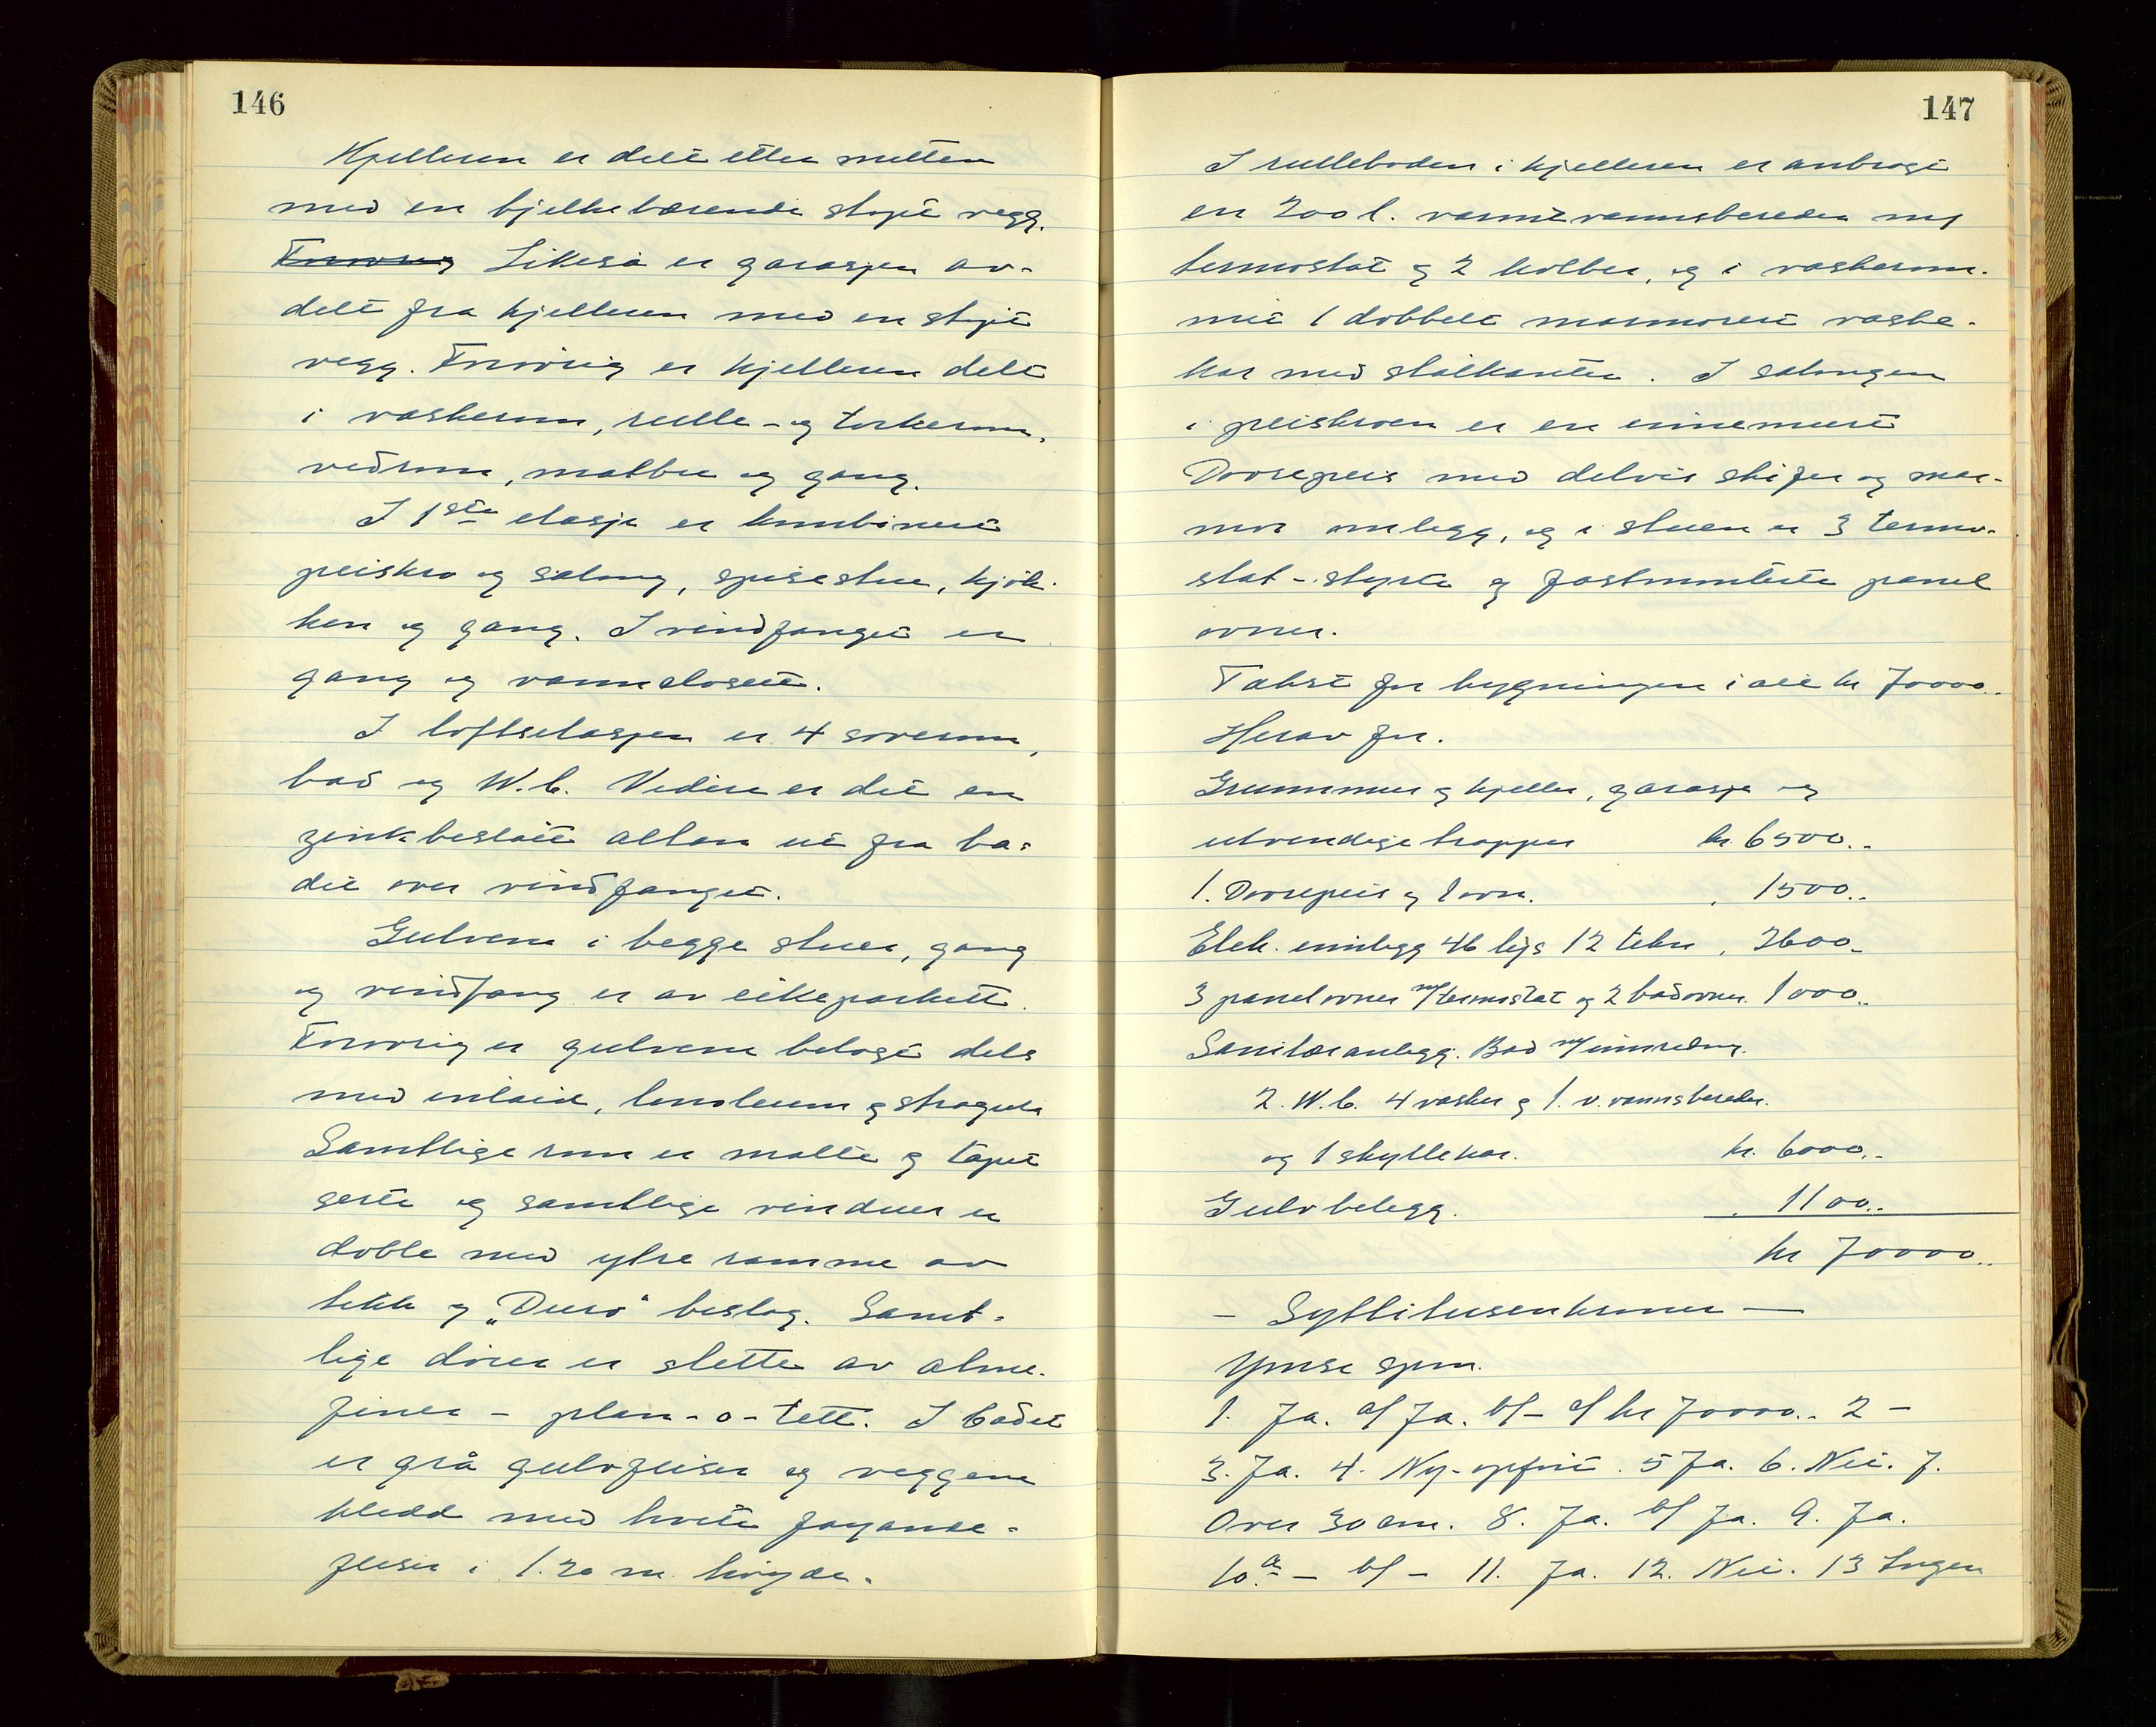 146
Kjelleren er delt etter mitten
med en bjelkebærende støpt vegg.
Forøvrig Likeså er garasjen av-
delt fra kjelleren med en støpt
vegg. Forøvrig er kjelleren delt
i vaskerom, rulle- og tørkerom,
vedrom, matbu og gang.
I 1ste etasje er kombinert
peiskro og salong, spisestue, kjøk-
ken og gang. I vindfanget er
gang og vannclosett.
I loftsetasjen er 4 soverom,
bad og W.C. Videre er det en
zinkbeslått altan ut fra ba-
det over vindfanget.
Gulvene i begge stuer, gang
og vindfang er av eikeparkett.
Forøvrig er gulvene belagt dels
med inlaid, linoleum og stragula
Samtlige rom er malte og tape
serte og samtlige vinduer er
doble med ytre ramme av
tekk og „Duro" beslag. Samt-
lige dører er slette av alme-
finer - plan-o-tett. I badet
er grå gulvfliser og veggene
kledd med hvite fayance-
fliser i 1.20 m. høyde.
147
I rulleboden i kjelleren er anbragt
en 200 l. varmtvannsbereder m/
termostat og 2 kolber, og i vaskerom-
met 1 dobbelt marmorert vaske-
kar med stålkanter. I salongen
i peiskroen er en innemurt
Dovrepeis med delvis skifer og mar-
mor omlegg, og i stuen er 3 termo-
stat-styrte og fastmonterte panel
ovner.
Takst for bygningen i alt kr 70000..
Herav for.
Grunnmur og kjeller, garasje og
utvendige trapper kr. 6500..
1. Dovrepeis og 1 ovn. " 1500..
Elek. innlegg 46 lys 12 tekn " 2600..
3 panelovner m/termostat og 2 badovner. 1000..
Sanitæranlegg. Bad m/innredn.
2. W.C. 4 vasker og 1. v. vannsbereder.
og 1 skyllekar. kr. 6000..
Gulvbelegg. " 1100..
kr 70000..
- Syttitusenkroner -
Ymse spm.
1. Ja. a/ Ja. b/ - c/ kr 70000.. 2 -
3. Ja. 4. Ny-oppført. 5 Ja. 6. Nei. 7.
Over 30 cm. 8. Ja. b/ Ja. 9. Ja.
10. a - b/ - 11. Ja. 12. Nei. 13 Ingen